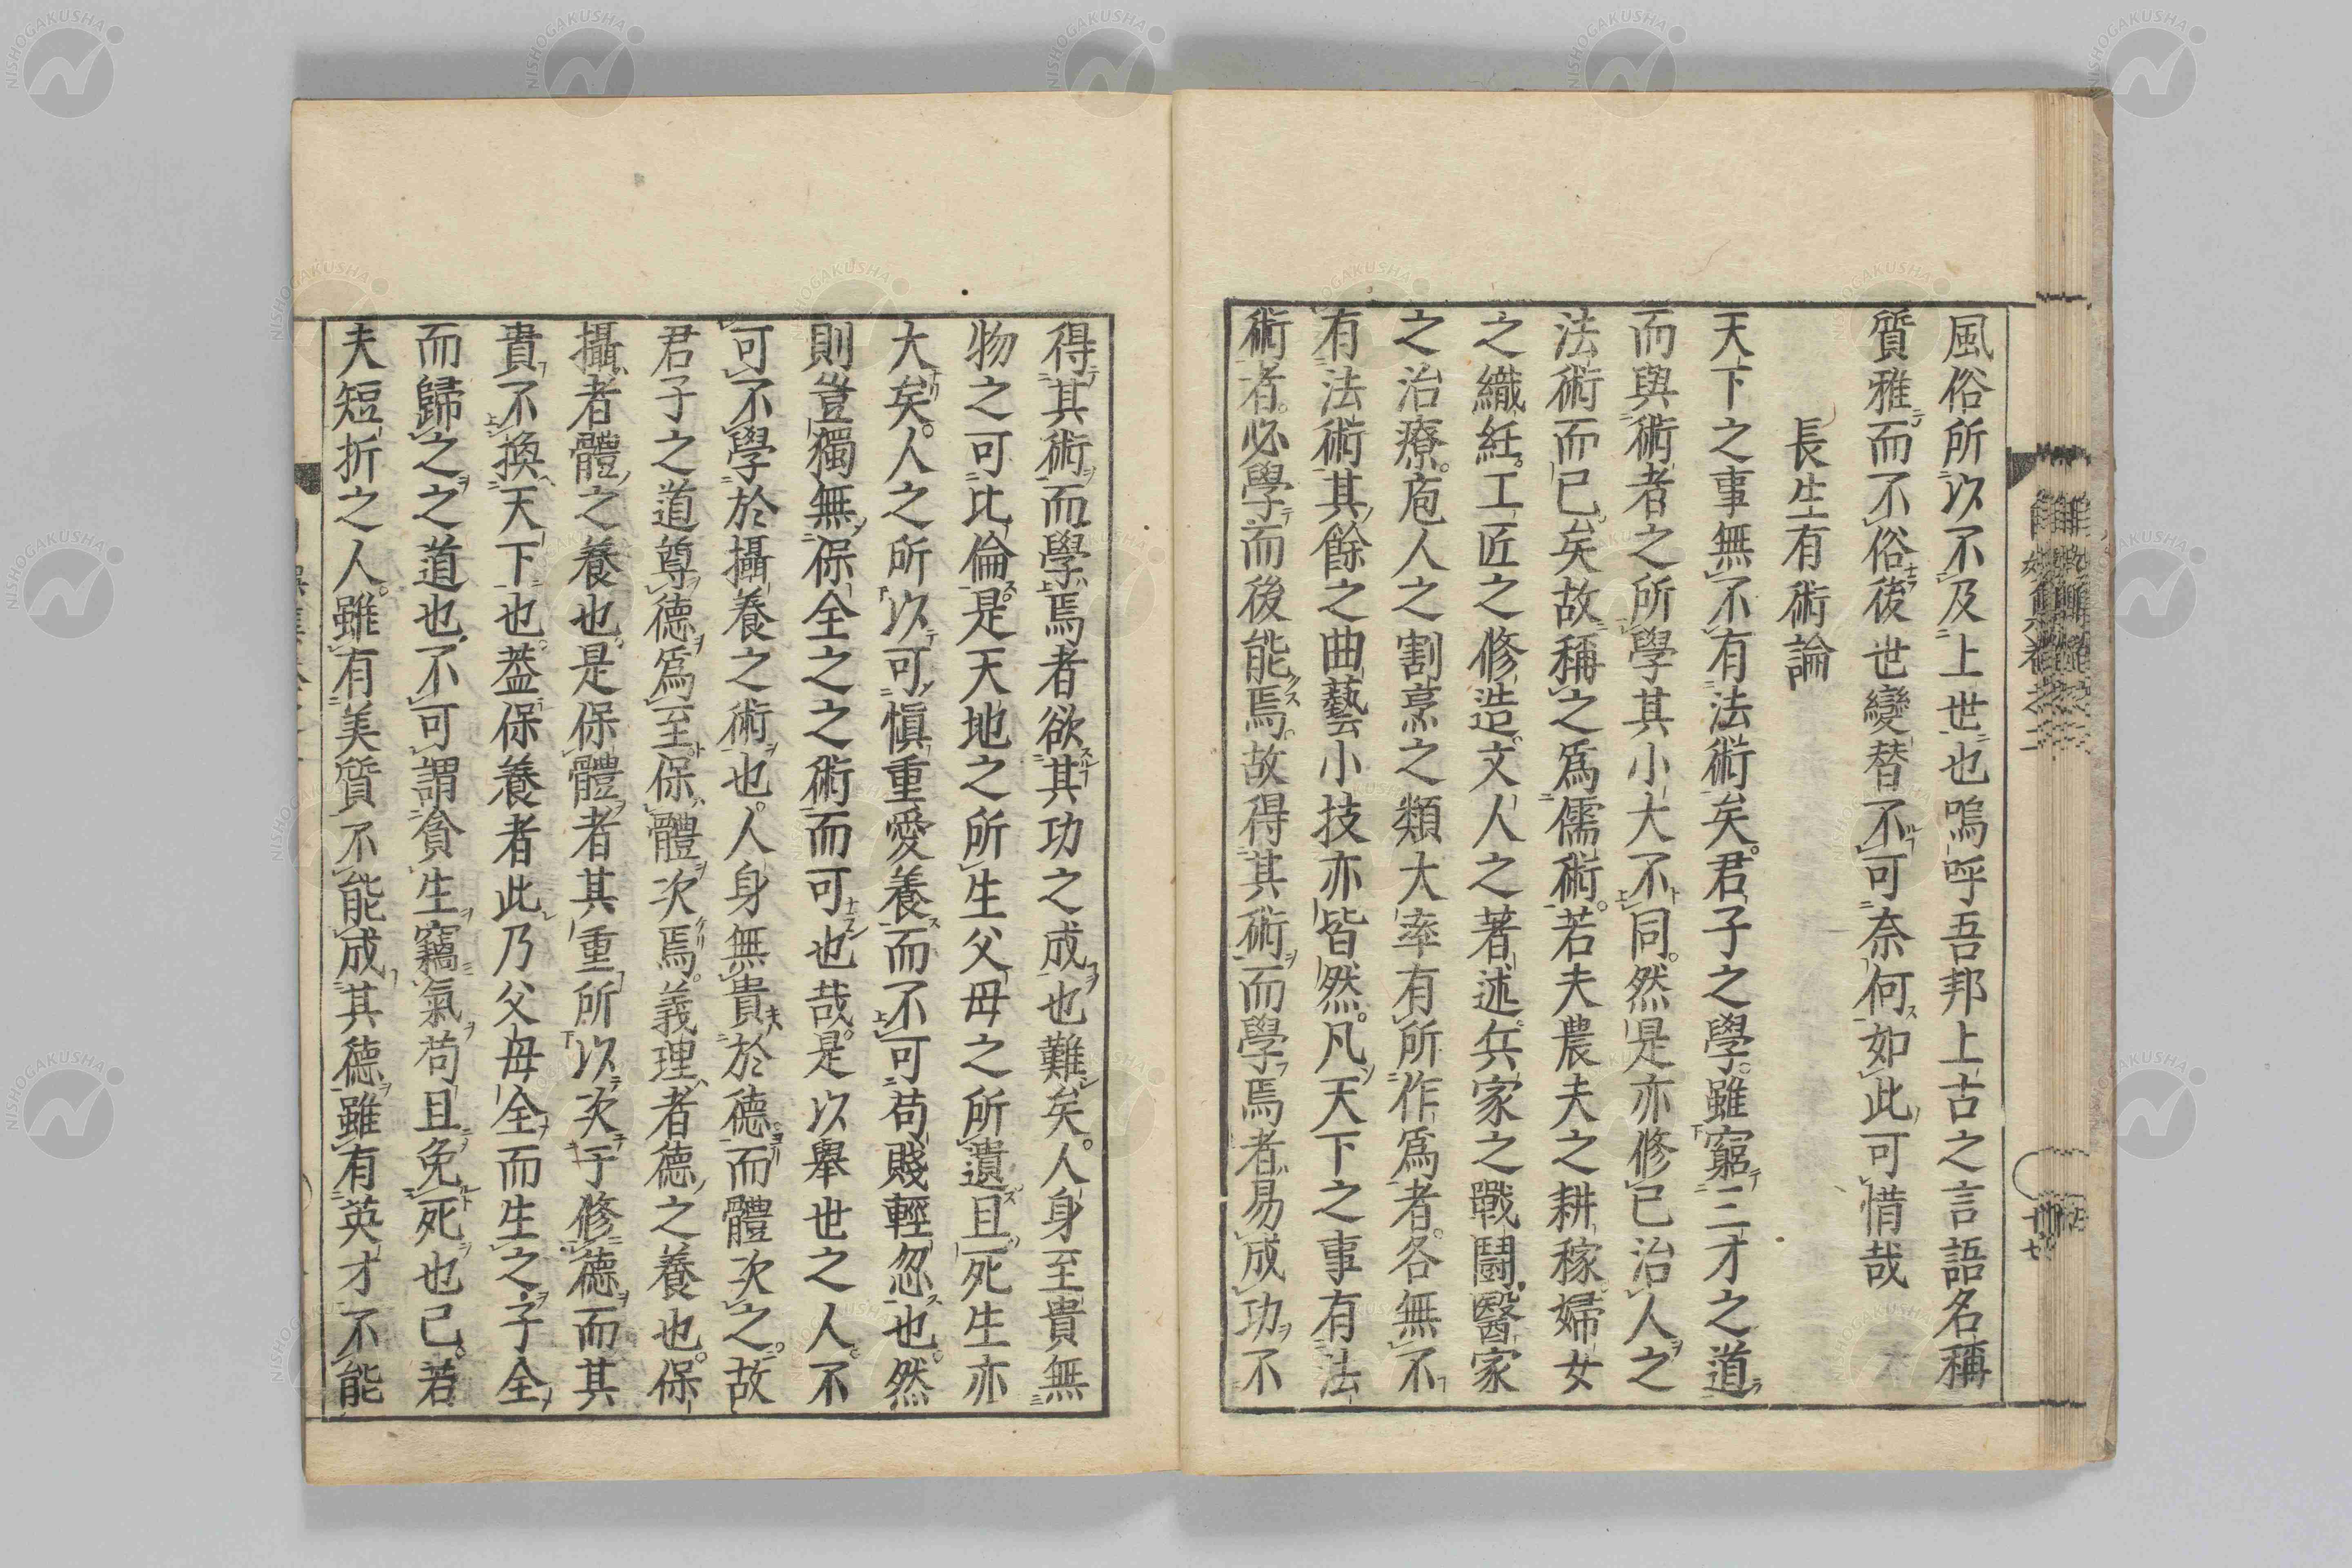 風俗所以不及上世也嗚呼吾邦上古之言語名稱
質雅而不俗後世變替不可奈何如此可惜哉
長生有術論
天下之事無不有法術矣。君子之學。雖窮三才之道
而與術者之所學其小大不同。然是亦修己治人之
法術而已矣故稱之爲儒術。若夫農夫之耕稼婦女
之織紝。工匠之修造。文人之著述。兵家之戰鬪。醫家
之治療。庖人之割烹之類大率有所作爲者。各無不
有法術其餘之曲藝小技亦皆然。凡天下之事有法
術者。必學而後能焉。故得其術而學焉者易成功不
得其術而學焉者欲其功之成也難矣。人身至貴無
物之可比倫。是天地之所生父母之所遺且死生亦
大矣。人之所以可愼重愛養而不可苟賤輕忽也。然
則豈獨無保全之之術而可也哉。是以舉世之人。不
可不學於攝養之術也。人身無貴於德。而體次之。故
君子之道尊德爲至保體次焉。義理者德之養也。保
攝者體之養也。是保體者其重所以次于修德而其
貴不換天下也。葢保養者此乃父母全而生之子全
而歸之之道也。不可謂貪生竊氣苟且免死也已。若
夫短折之人。雖有美質不能成其德雖有英才不能
NISHOGAKUSHA